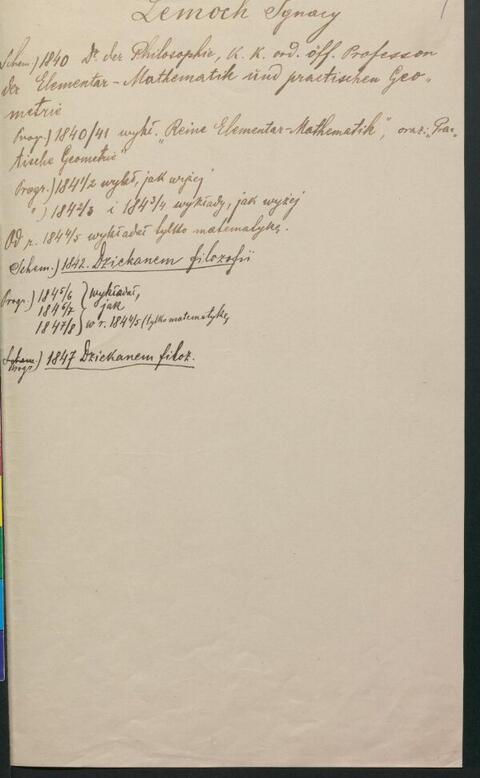 Lemoch Ignacy
Schem.) 1840 Dr. der Philosophie, K. K. ord. öff. Professor
der Elementar-Mathematik und practischen Geo-
metrie
Progr.) 1840/41 wykł. "Reine Elementar-Mathematik", oraz: "Prac-
tische Geometrie"
Progr.) 1841/2 wykł., jak wyżej
") 1842/3 i 1843/4 wykłady, jak wyżej
Od r. 1844/5 wykładał tylko matematykę.
Schem.) 1842. Dziekanem filozofii
Progr.) 1845/6 } wykładał,
1846/7 } jak
1847/8 } w r. 1844/5 (tylko matematykę
Schem.) 1847 Dziekanem filoz.
Progr.